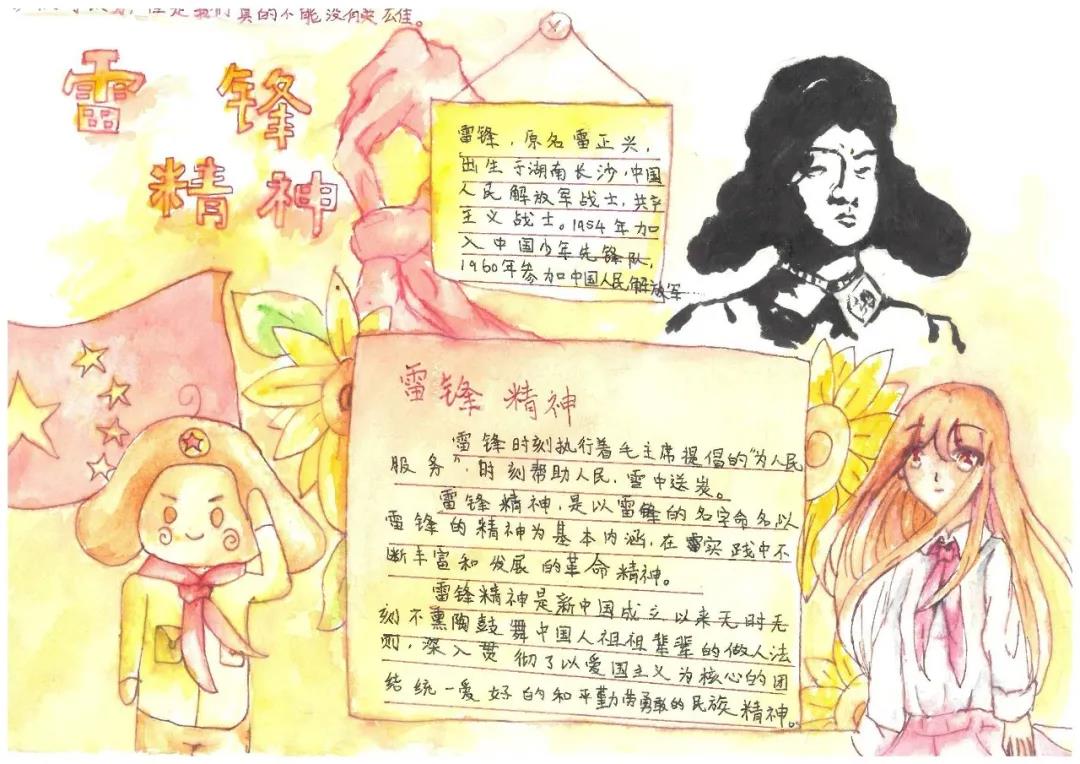 我们真的不能没有英雄。
雷锋
精神
雷锋，原名雷正兴，
出生于湖南长沙，中国
人民解放军战士，共产
主义战士。1954年加
入中国少年先锋队，
1960年参加中国人民解放军……
雷锋精神
雷锋时刻执行着毛主席提倡的“为人民
服务”，时刻帮助人民，雪中送炭。
雷锋精神，是以雷锋的名字命名，以
雷锋的精神为基本内涵，在实践中不
断丰富和发展的革命精神。
雷锋精神是新中国成立以来无时无
刻不熏陶鼓舞中国人祖祖辈辈的做人法
则，深入贯彻了以爱国主义为核心的团
结统一爱好的和平勤劳勇敢的民族精神。